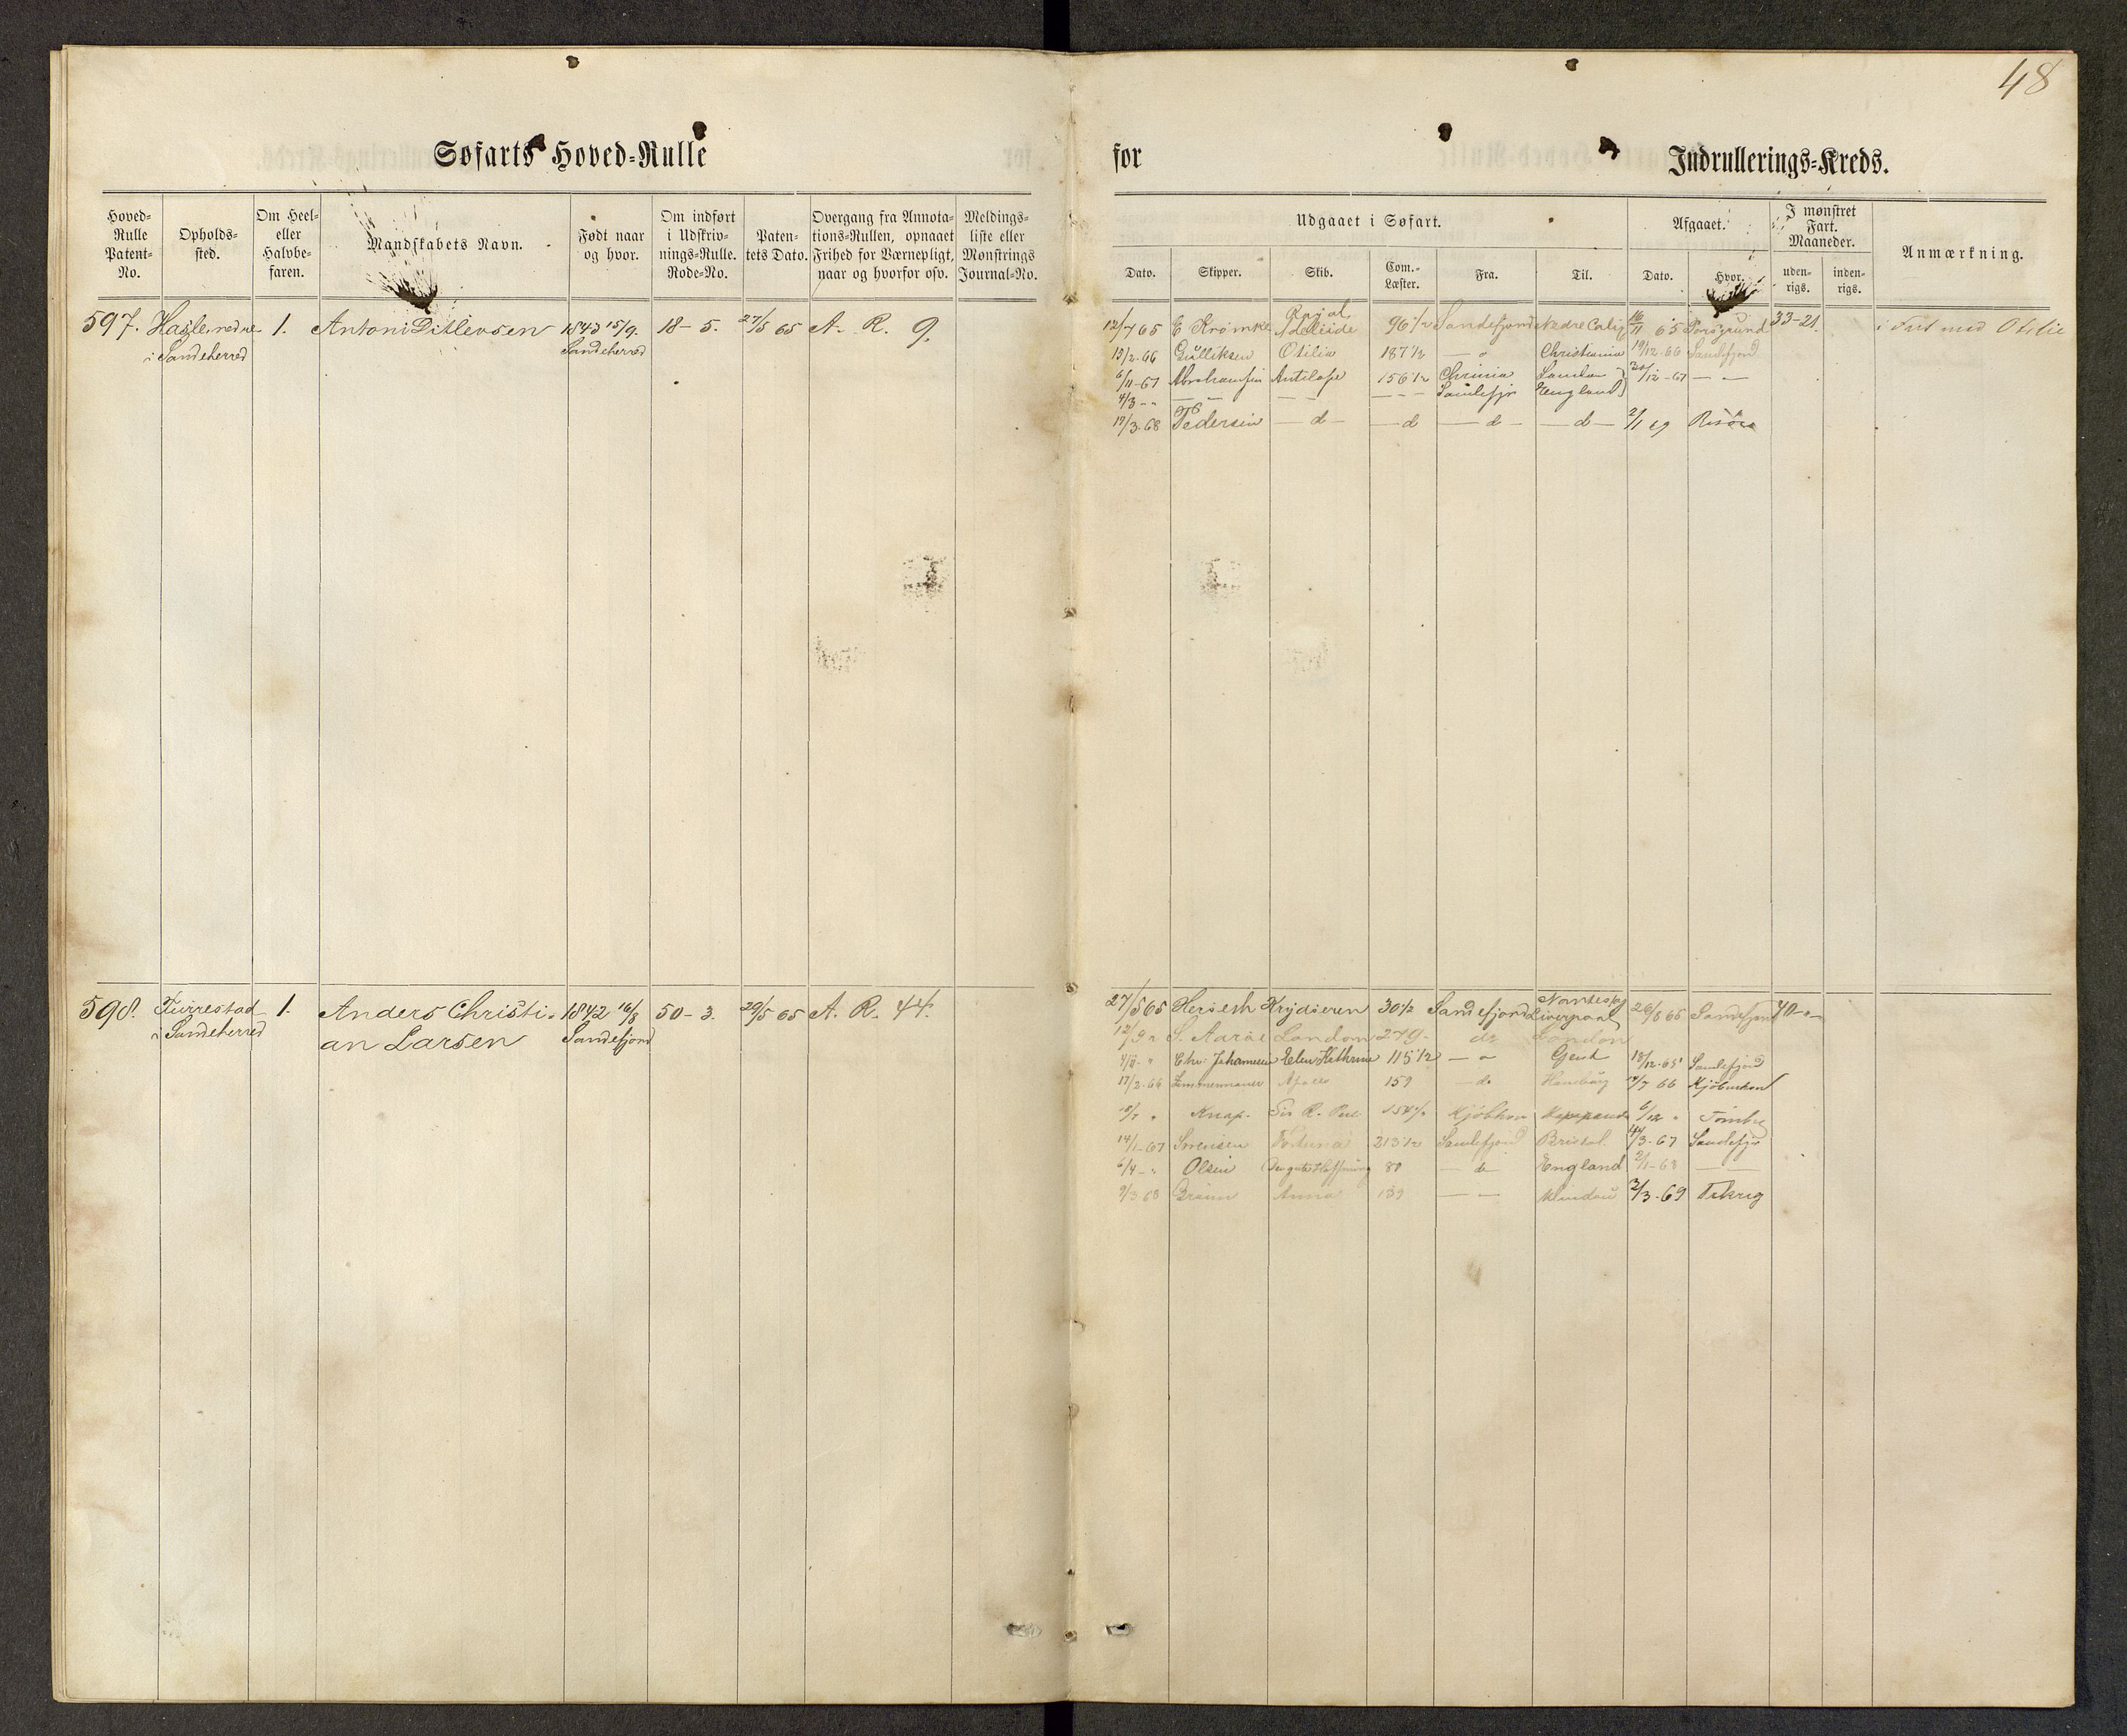 48
Søfarts Hoved=Rulle
for
Indrullerings=Kreds.
Hoved=Rulle Patent=No.
Opholds=sted.
Om Heel= eller Halvbe=faren.
Mandskabets Navn.
Født naar og hvor.
Om indført i Udskriv=nings=Rulle. Rode=No.
Paten=tets Dato.
Overgang fra Annota=tions=Rullen, opnaaet Frihed for Værnepligt, naar og hvorfor osv.
Meldings=liste eller Mønstrings Journal=No.
Udgaaet i Søfart.
Dato.
Skipper.
Skib.
Com.=Læster.
Fra.
Til.
Afgaaet.
Dato.
Hvor.
I mønstret Fart. Maaneder.
uden=rigs.
inden=rigs.
Anmærkning.
597. Hasle nedre 1. Antoni Ditlevsen 1843 15/9. 18-5. 27/5 65 A. R. 9.
i Sandeherred Sandeherred
12/7 65 E Krømke Adelleide 96 1/2 Sandefjord 16/11 65 Porsgrund 33-21.
13/2-66 Gulliksen Otilia 187 1/2 — " Christiania 19/12-66 Sandefjord
6/11-67 Abrahamsen Antilope 156 1/2 Chrania London 20/12-67 — —
4/3 - " — — — — — — Sandefjr England
13/3-68 Pedersen — d — — d — d — — d — 2/1 69 Risøer
598. Furrestad 1. Anders Christi= 1842 16/8 50-3. 29/5 65 A. R. 44.
i Sandeherred an Larsen Sandefjord
27/5 65 Krydseren 30 1/2 Sandefjord Liverpool 26/8 65 Sandefjord 40-"-
12/9 " S. Aarøe London 279- do London
4/11- " Chr: Johannesen Elen Kathrine 115 1/2 — " Gent 18/12-65 Sandefjord
17/2-66 Apollo 159 — do Hamburg 4/7 66 Kjøbenhavn
" Knap. Sir R. Peel Kjøbhvn 6/12 "
14/1-67 Sørensen Fortuna 213 1/2 Sandefjord Bristol. 14/3-67 Sandefjr
6/4- " Olsen 80 — d — England 2/1-68 — —
9/3 68 Anna 139 — — 2/3-69